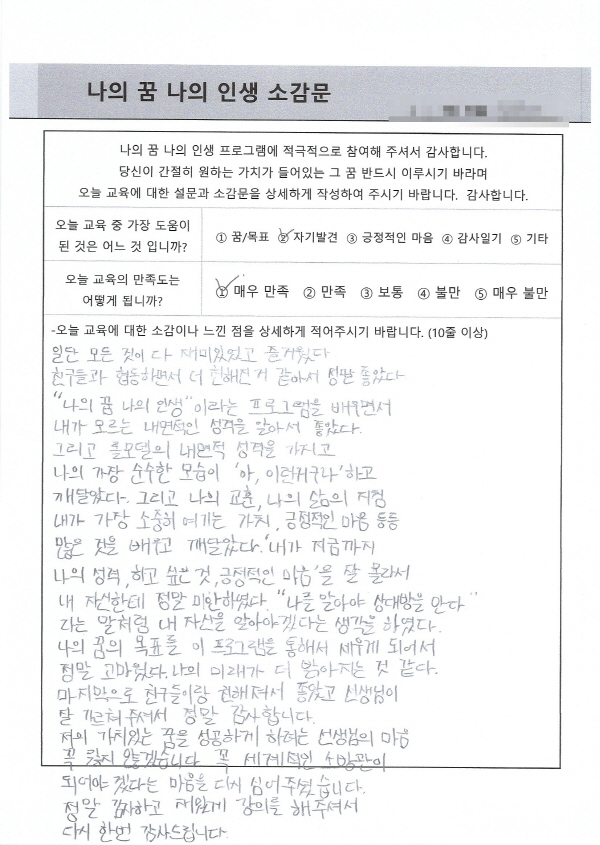 나의 꿈 나의 인생 소감문
나의 꿈 나의 인생 프로그램에 적극적으로 참여해 주셔서 감사합니다.
당신이 간절히 원하는 가치가 들어있는 그 꿈 반드시 이루시기 바라며
오늘 교육에 대한 설문과 소감문을 상세하게 작성하여 주시기 바랍니다. 감사합니다.
오늘 교육 중 가장 도움이
된 것은 어느 것 입니까?
① 꿈/목표 ② 자기발견 ③ 긍정적인 마음 ④ 감사일기 ⑤ 기타
오늘 교육의 만족도는
어떻게 됩니까?
① 매우 만족 ② 만족 ③ 보통 ④ 불만 ⑤ 매우 불만
-오늘 교육에 대한 소감이나 느낀 점을 상세하게 적어주시기 바랍니다. (10줄 이상)
일단 모든 것이 다 재미있었고 즐거웠다
친구들과 협동하면서 더 친해진거 같아서 정말 좋았다
"나의 꿈 나의 인생"이라는 프로그램을 배우면서
내가 모르는 내면적인 성격을 알아서 좋았다.
그리고 롤모델의 내면적 성격을 가지고
나의 가장 순수한 모습이 '아, 이런거구나'하고
깨달았다. 그리고 나의 교훈, 나의 삶의 지침
내가 가장 소중히 여기는 가치, 긍정적인 마음 등등
많은 것을 배우고 깨달았다. '내가 지금까지
나의 성격, 하고 싶은 것, 긍정적인 마음'을 잘 몰라서
내 자신한테 정말 미안하였다. "나를 알아야 상대방을 안다"
라는 말처럼 내 자신을 알아야겠다는 생각을 하였다.
나의 꿈의 목표를 이 프로그램을 통해서 세우게 되어서
정말 고마웠다. 나의 미래가 더 밝아지는 것 같다.
마지막으로 친구들이랑 친해져서 좋았고 선생님이
잘 가르쳐 주셔서 정말 감사합니다.
저의 가치있는 꿈을 성공하게 하려는 선생님의 마음
꼭 잊지 않겠습니다. 꼭 세계적인 소방관이
되어야 겠다는 마음을 다시 심어 주셨습니다.
정말 감사하고 재밌게 강의를 해주셔서
다시 한번 감사드립니다.